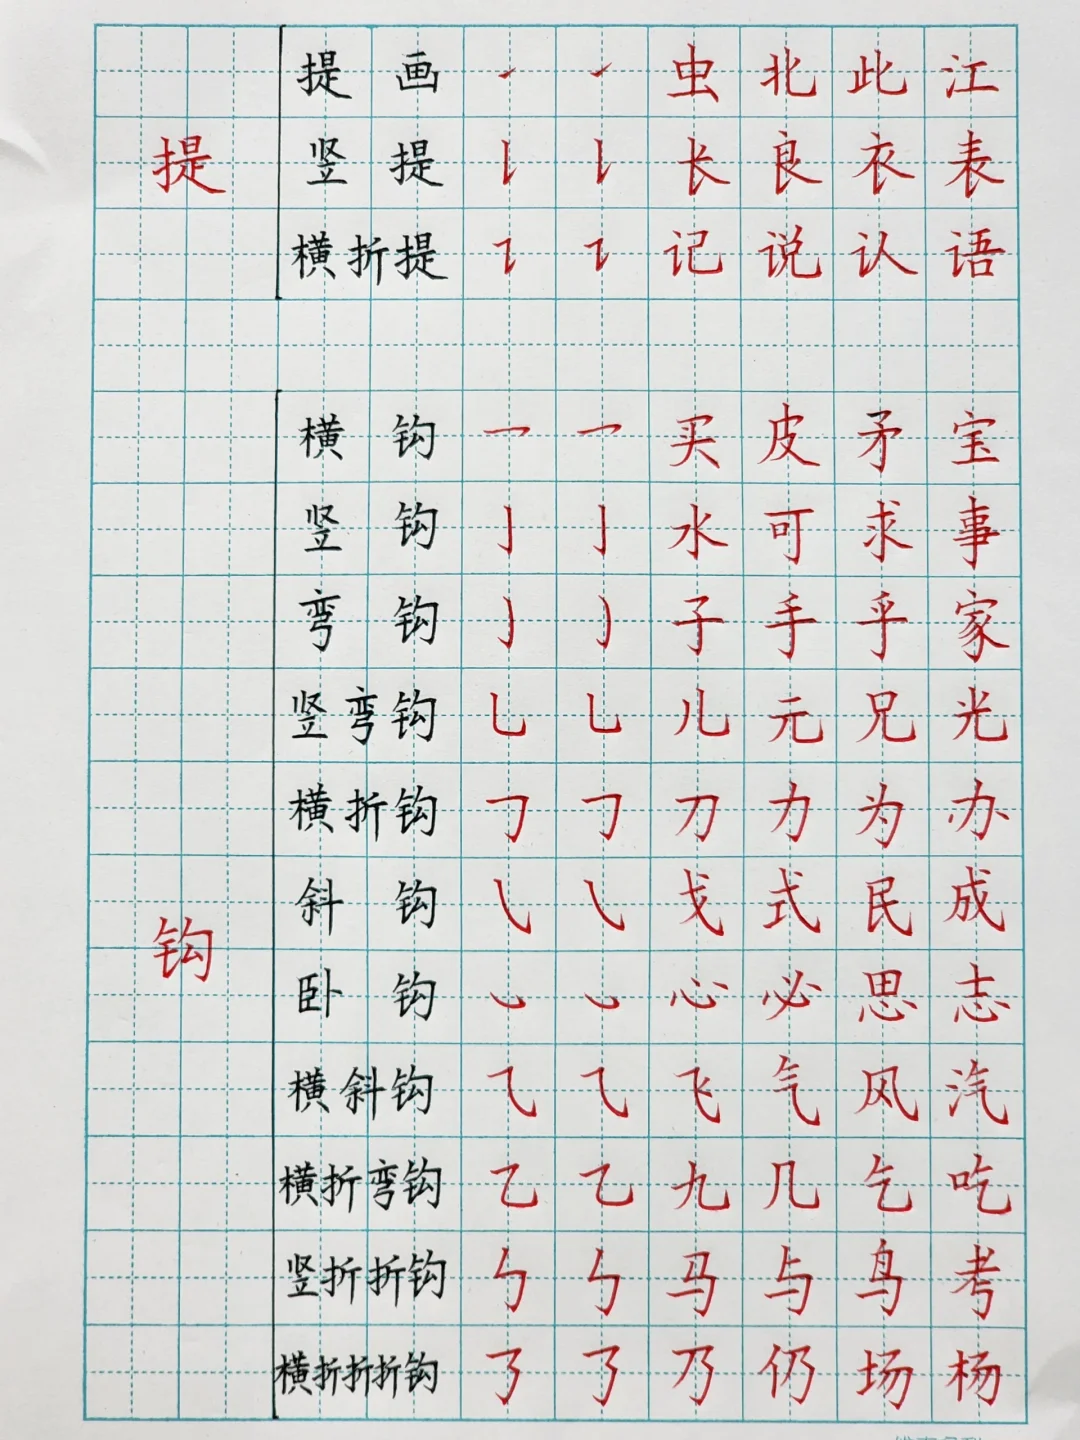 提
提 画 ㇀ ㇀ 虫 北 此 江
竖 提 𠄌 𠄌 长 良 衣 表
横折提 ㇊ ㇊ 记 说 认 语
钩
横 钩 乛 乛 买 皮 矛 宝
竖 钩 亅 亅 水 可 求 事
弯 钩 ㇁ ㇁ 子 手 乎 家
竖弯钩 乚 乚 儿 元 兄 光
横折钩 ㇆ ㇆ 刀 力 为 办
斜 钩 ㇂ ㇂ 戈 式 民 成
卧 钩 ㇃ ㇃ 心 必 思 志
横斜钩 ⺄ ⺄ 飞 气 风 汽
横折弯钩 乙 乙 九 几 乞 吃
竖折折钩 ㇉ ㇉ 马 与 鸟 考
横折折折钩 ㇡ ㇡ 乃 仍 场 杨